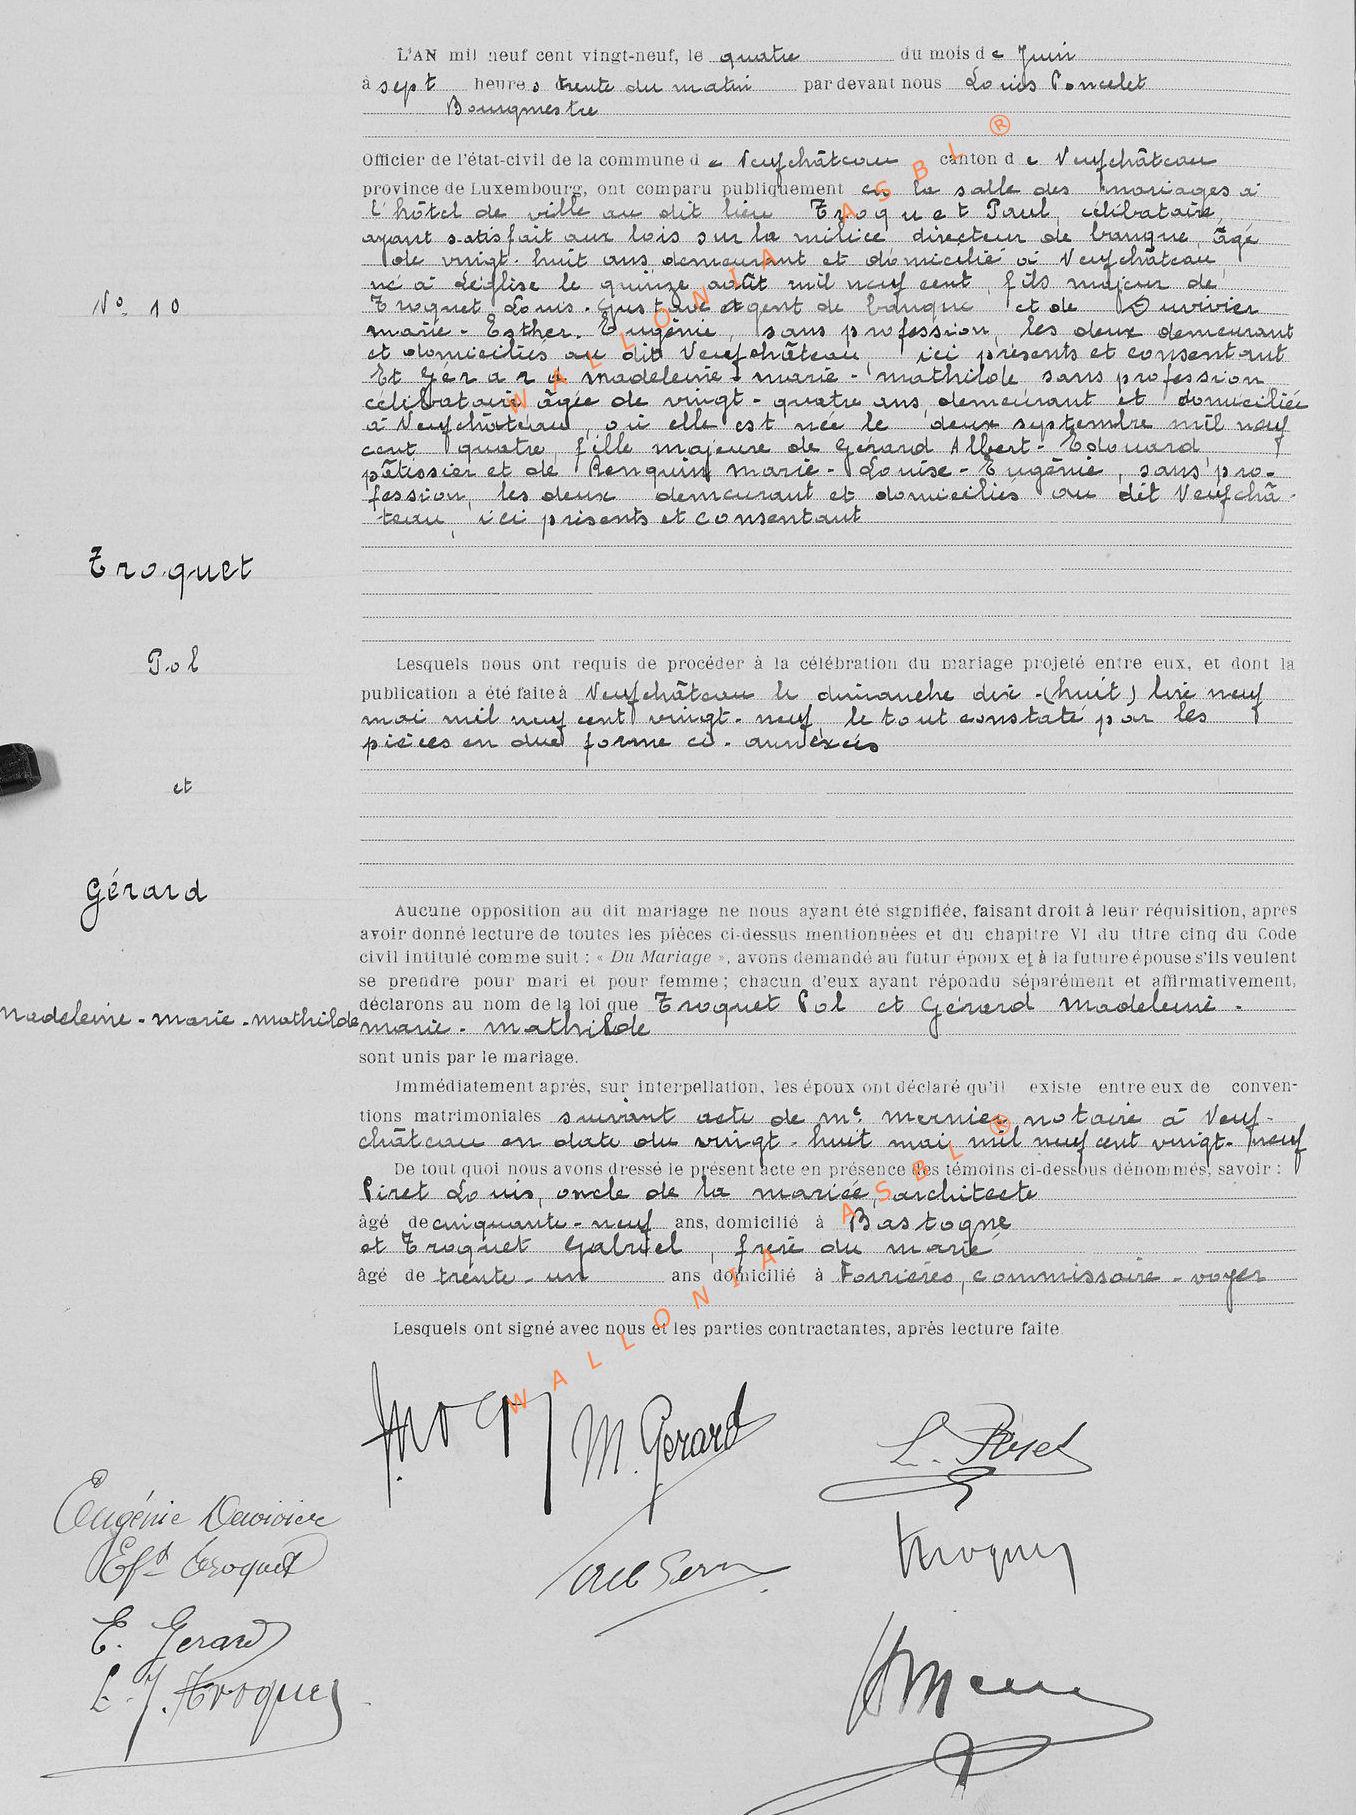 L'AN mil neuf cent vingt-neuf, le quatre du mois de Juin
à sept heures trente du matin par devant nous Louis Poncelet
Bourgmestre
Officier de l'état-civil de la commune de Neufchâteau canton de Neufchâteau
province de Luxembourg, ont comparu publiquement en la salle des mariages à
l'hôtel de ville au dit lieu Troquet Paul, célibataire,
ayant satisfait aux lois sur la milice directeur de banque, âgé
de vingt-huit ans, demeurant et domicilié à Neufchâteau,
né à Léglise le quinze août mil neuf cent, fils majeur de
N° 10
Troquet Louis-Gustave agent de banque et de Duvivier
Marie-Esther-Eugénie, sans profession, les deux demeurant
et domiciliés au dit Neufchâteau, ici présents et consentant
Et Gérard Madeleine-Marie-Mathilde sans profession
célibataire âgée de vingt-quatre ans, demeurant et domiciliée
à Neufchâteau, où elle est née le deux septembre mil neuf
cent quatre, fille majeure de Gérard Albert-Edouard
pâtissier et de Renquin Marie-Louise-Eugénie, sans pro-
fession, les deux demeurant et domiciliés au dit Neufchâ-
teau, ici présents et consentant
Troquet
Pol
Lesquels nous ont requis de procéder à la célébration du mariage projeté entre eux, et dont la
publication a été faite à Neufchâteau le dimanche dix-(huit) lire neuf
mai mil neuf cent vingt-neuf, le tout constaté par les
pièces en due forme ci-annexées
et
Gérard
Aucune opposition au dit mariage ne nous ayant été signifiée, faisant droit à leur réquisition, après
avoir donné lecture de toutes les pièces ci-dessus mentionnées et du chapitre VI du titre cinq du Code
civil intitulé comme suit : « Du Mariage », avons demandé au futur époux et à la future épouse s'ils veulent
se prendre pour mari et pour femme ; chacun d'eux ayant répondu séparément et affirmativement,
déclarons au nom de la loi que Troquet Pol et Gérard Madeleine-
Madeleine-Marie-Mathilde
Marie-Mathilde
sont unis par le mariage.
Immédiatement après, sur interpellation, les époux ont déclaré qu'il existe entre eux de conven-
tions matrimoniales suivant acte de Me. Mernier notaire à Neuf-
château en date du vingt-huit mai mil neuf cent vingt-neuf
De tout quoi nous avons dressé le présent acte en présence des témoins ci-dessous dénommés, savoir :
Piret Louis, oncle de la mariée, architecte
âgé de cinquante-neuf ans, domicilié à Bastogne
et Troquet Gabriel, frère du marié
âgé de trente-un ans domicilié à Forrières, commissaire-voyer
Lesquels ont signé avec nous et les parties contractantes, après lecture faite
M. Gérard
L. Piret
Eugénie Duvivier
Troquet
E. Gerard
L. J. Troquet
WALLONIA ASBL ®
WALLONIA ASBL ®